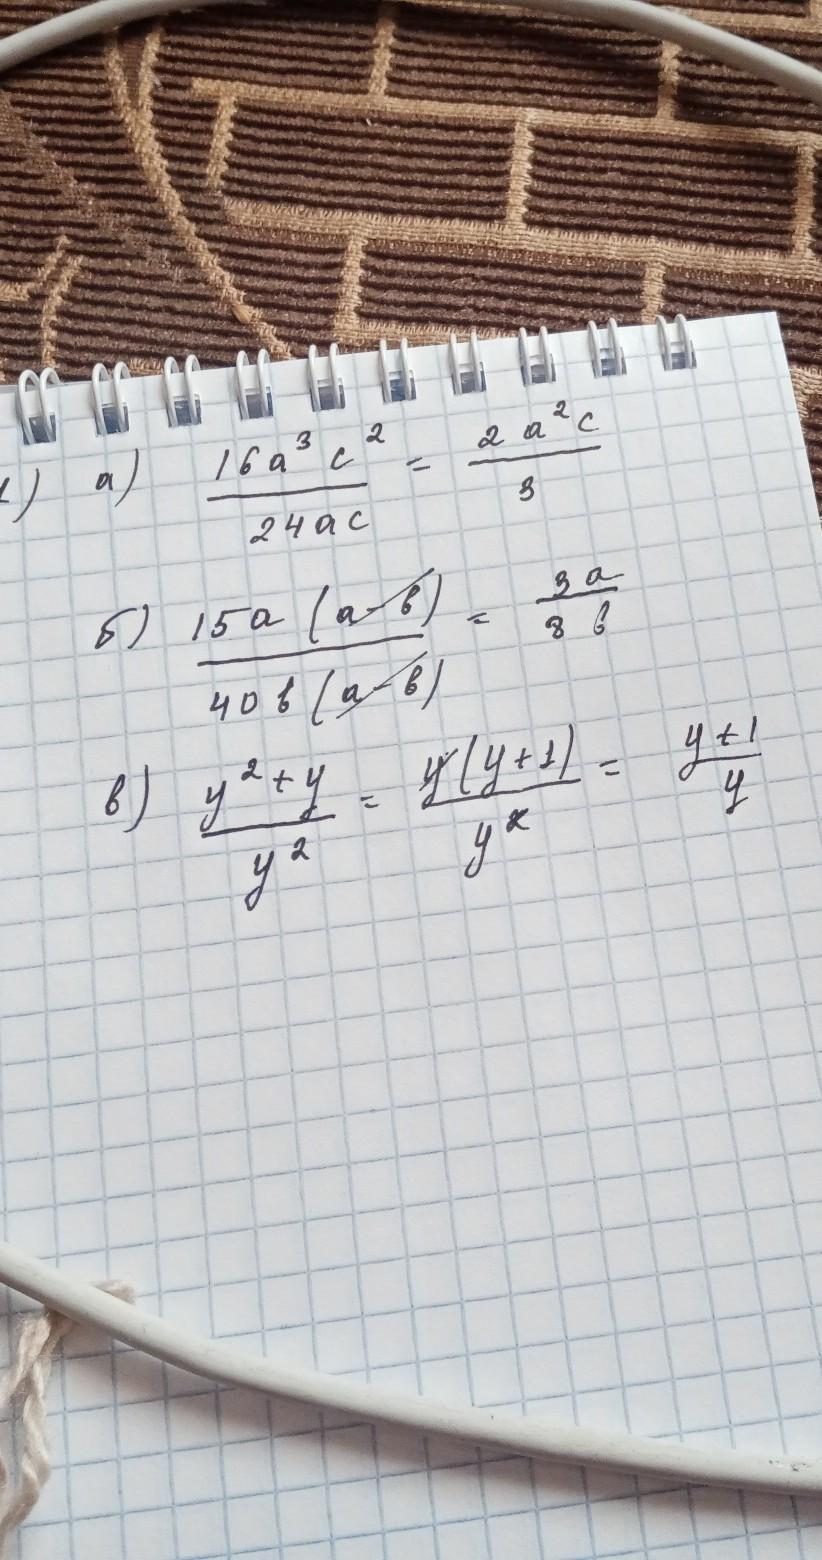 1) а) 16a³c² / 24ac = 2a²c / 3
б) 15a(a-b) / 40b(a-b) = 3a / 8b
в) y²+y / y² = y(y+1) / y² = y+1 / y